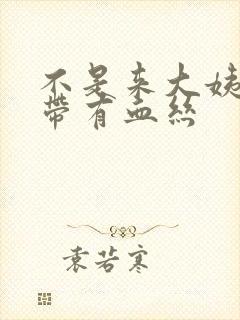 不是来大姨
带有血丝
袁若寒